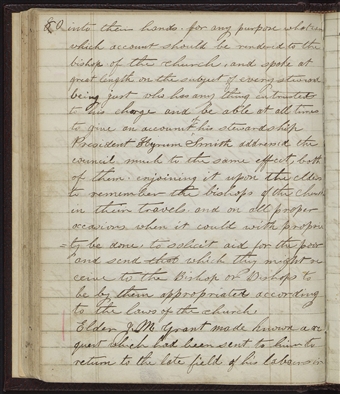 80 into their hands for any purpose whatever
which account should be rendered to the
bishop of the church, and spoke at
great length on the subject of every steward
being just who has any thing intrusted
to his charge and be able at all times
to give an account of his stewardship
President Hyrum Smith addressed the
council much to the same effect, both
of them enjoining it upon the elders
to remember the bishops of the church
in their travels and on all proper
occasions when it could with proprie
=ty be done to solicit aid for the poor
and send that which they might re
ceive to the Bishop or Bishops to
be by them appropriated according
to the laws of the church.
Elder J. M. Grant made known a re
quest which had been sent to him to
return to the late field of his labours in